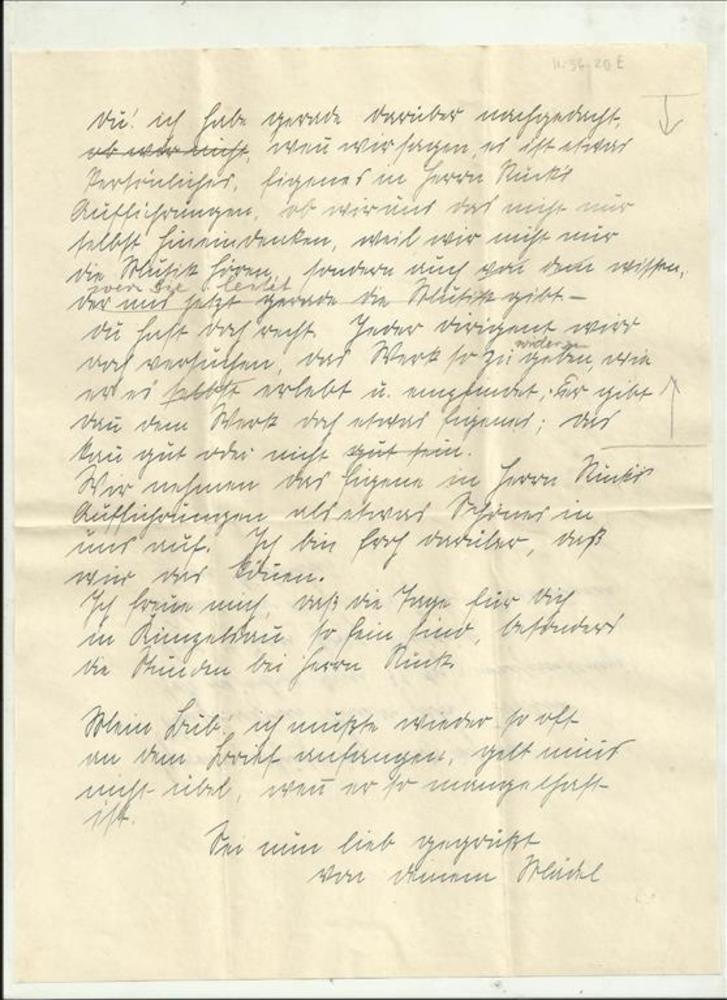 11.36.20 E
Du! ich habe gerade darüber nachgedacht,
ob wir nicht, wen̄ wir sagen, es ist etwas
Persönliches, Eigenes in Herrn Rucks
Aufführungen, ob wir uns das nicht nur
selbst hineindenken, weil wir nicht nur
die Musik hören, sondern auch von dem wissen,
wer sie leitet
der uns jetzt gerade die Musik gibt –
Du hast doch recht. Jeder Dirigent wird
widerzu
doch versuchen, das Werk so zu geben, wie
er es selbst erlebt u. empfindet; Er gibt
dan̄ dem Werk doch etwas Eigenes; das
kan̄ gut oder nicht gut sein.
Wir nehmen das Eigene in Herrn Rucks
Aufführungen als etwas Schönes in
uns auf. Ich bin froh darüber, daß
wir das kön̄en.
Ich freue mich, daß die Tage für Dich
in Künzelsau so fein sind, besonders
die Stunden bei Herrn Ruck.
Mein Bub! ich mußte wieder so oft
an dem Brief anfangen, gelt nim̄s
nicht übel, wen̄ er so mangelhaft
ist.
Sei nun lieb gegrüßt
von deinem Mädel